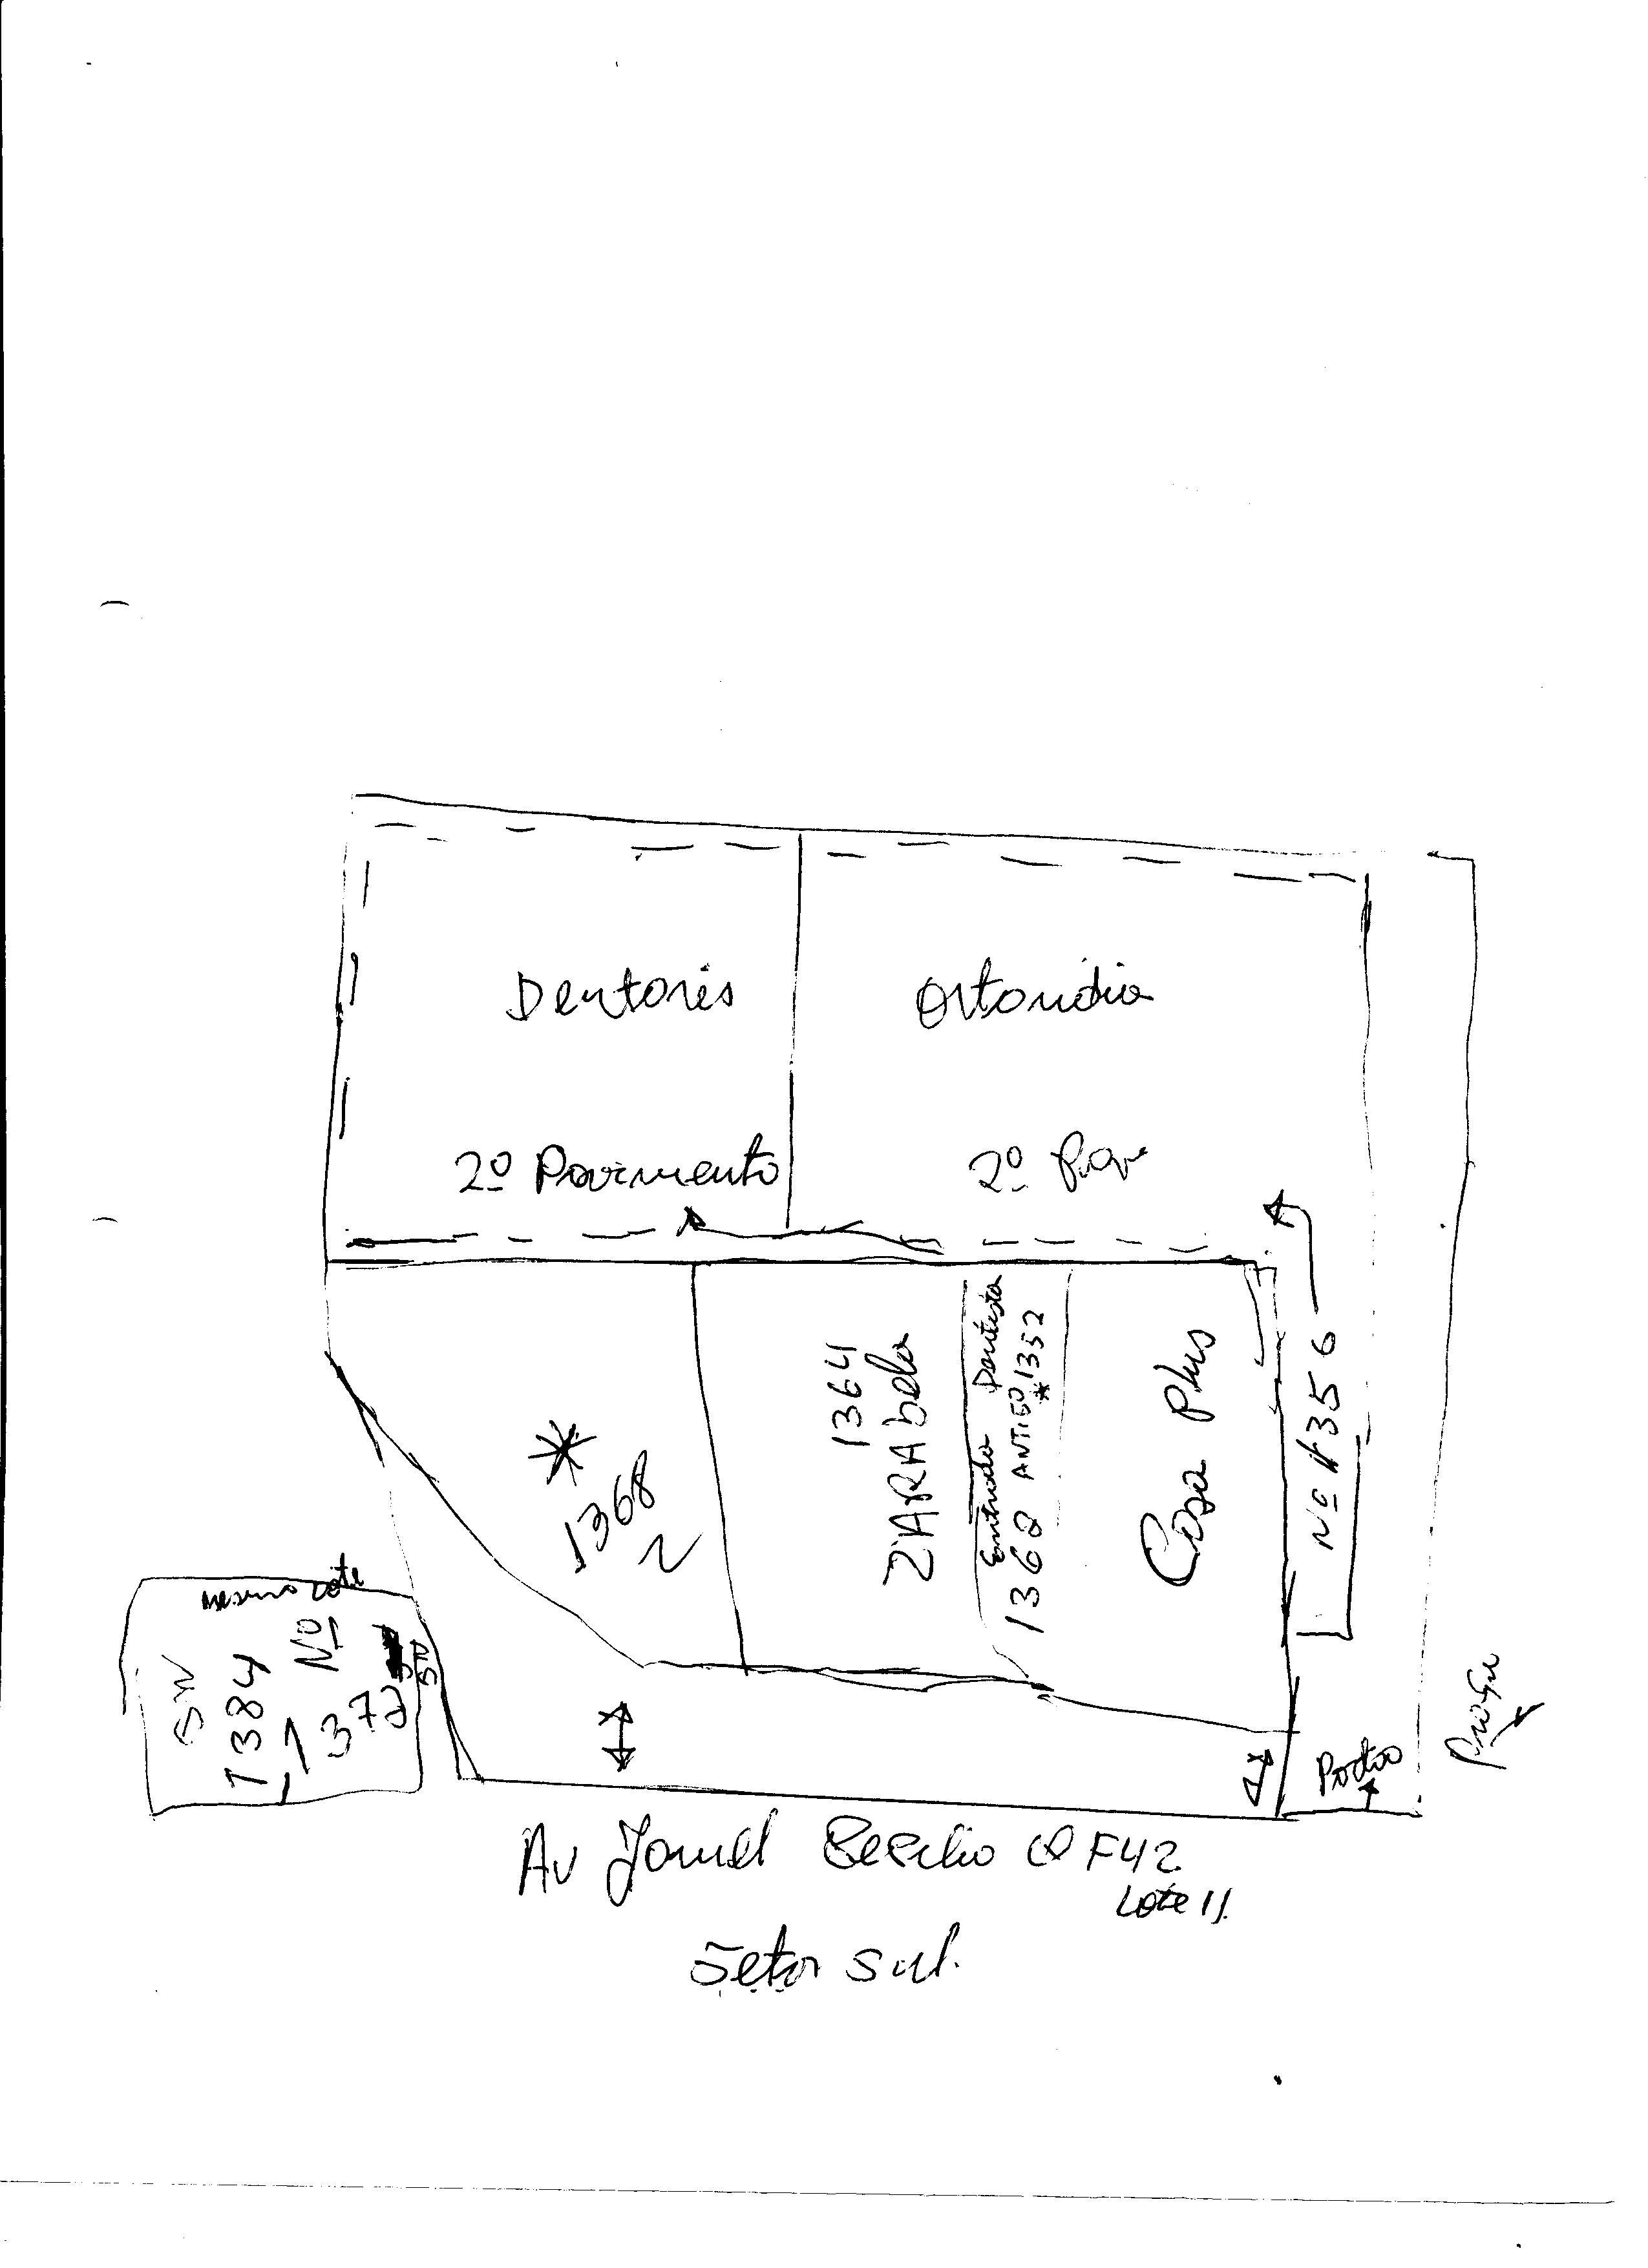 Dentones
Ortoidia
2º Pavimento
2º Pav
1368
2
1364
ZARAbela
Entrada Dentista
1368 ANTIGO *1352
Casa Plus
Nº 1356
mesmo lote
SN
1384
Nº
1372
SN
Portão
Av Jamel Cecilio Q F42
Lote 11.
Setor Sul.